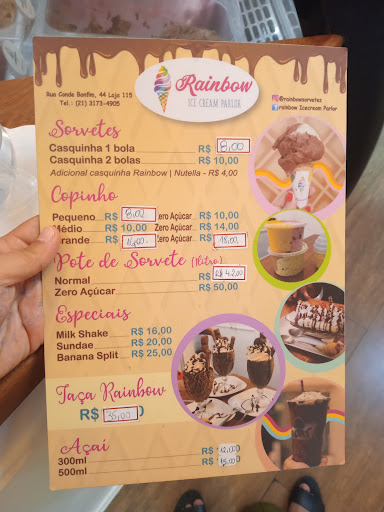 Rua Conde Bonfim, 44 Loja 115
Tel.: (21) 3173-4905
Rainbow
ICE CREAM PARLOR
@rainbowsorvetes
rainbow Icecream Parlor
Sorvetes
Casquinha 1 bola R$ 8,00
Casquinha 2 bolas R$ 10,00
Adicional casquinha Rainbow | Nutella - R$ 4,00
Copinho
Pequeno R$ 8,00 Zero Açúcar R$ 10,00
Médio R$ 10,00 Zero Açúcar R$ 14,00
Grande R$ 16,00 Zero Açúcar R$ 18,00
Pote de Sorvete (1litro)
Normal R$ 42,00
Zero Açúcar R$ 50,00
Especiais
Milk Shake R$ 16,00
Sundae R$ 20,00
Banana Split R$ 25,00
Taça Rainbow
R$ 35,00
Açaí
300ml R$ 12,00
500ml R$ 15,00